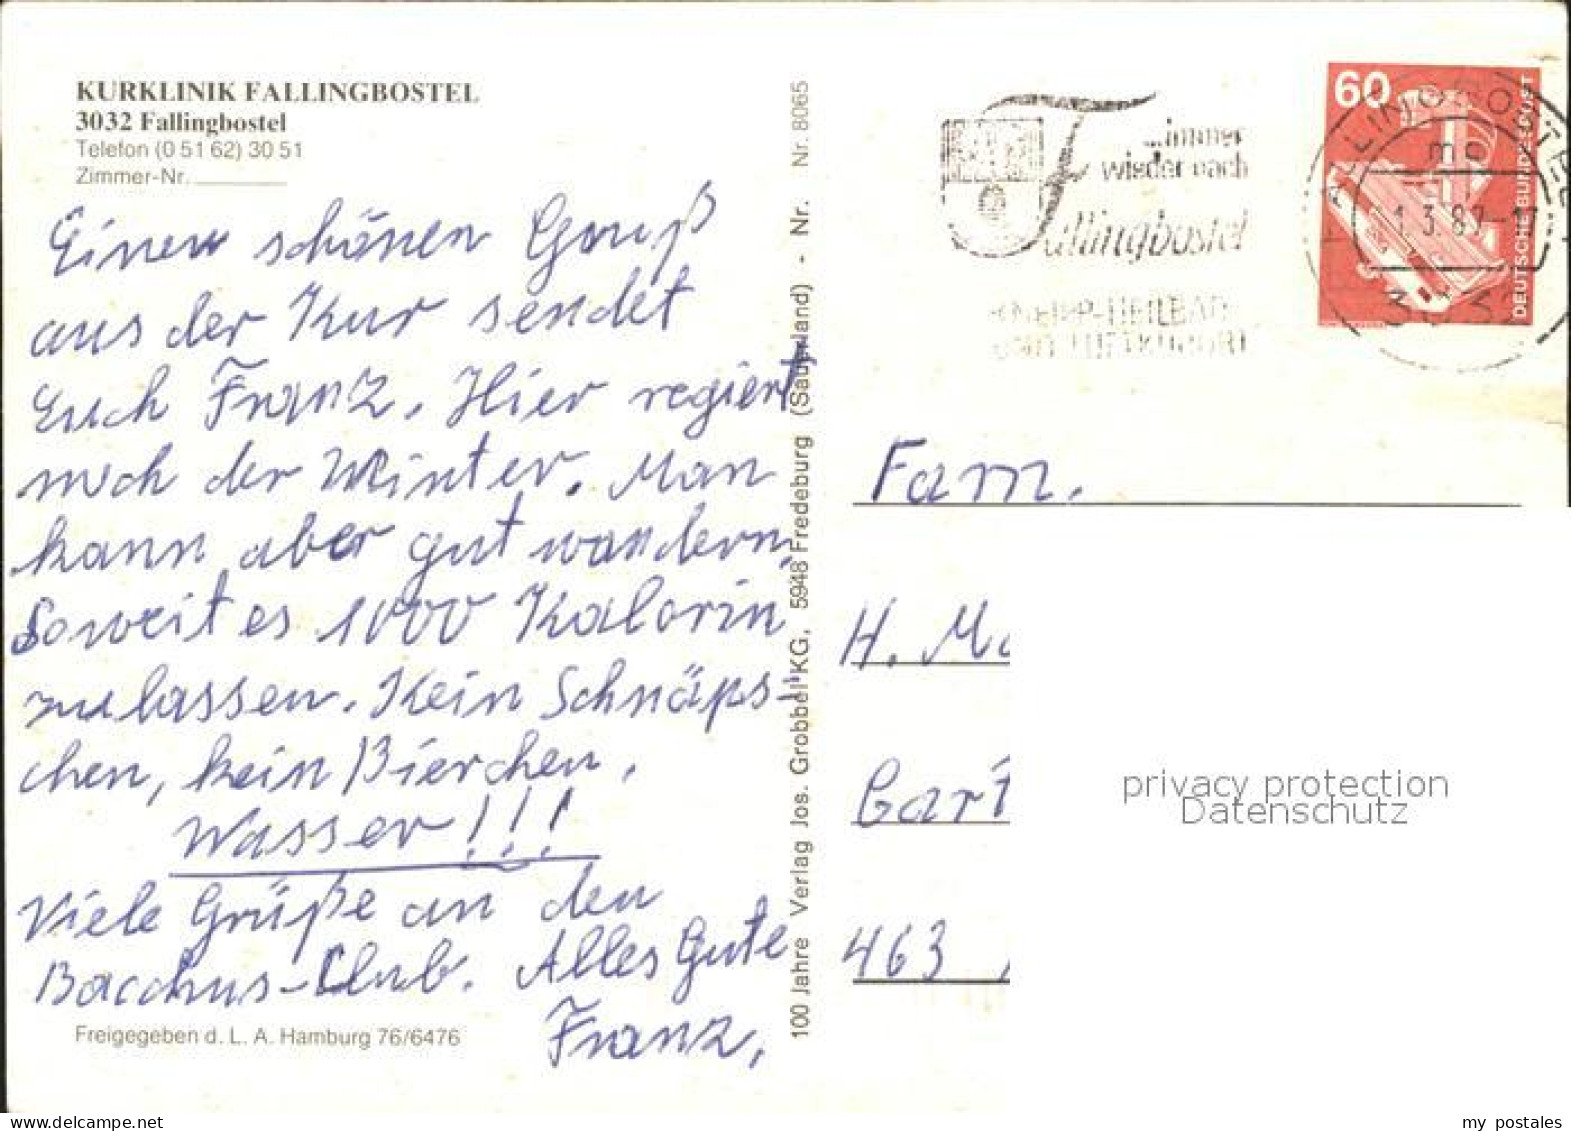 KURKLINIK FALLINGBOSTEL
3032 Fallingbostel
Telefon (0 51 62) 30 51
Zimmer-Nr.
Einen schönen Gruß
aus der Kur sendet
Euch Franz. Hier regiert
noch der Winter. Man
kann aber gut wandern,
Soweit es 1000 Kalorin
zulassen. Kein Schnäps-
chen, kein Bierchen,
Wasser!!!
Viele Grüße an den
Bacchus-Club. Alles Gute
Franz,
Freigegeben d. L. A. Hamburg 76/6476
100 Jahre Verlag Jos. Grobbel KG, 5948 Fredeburg (Sauerland) - Nr. Nr. 8065
...immer
wieder nach
Fallingbostel
KNEIPP-HEILBAD
UND LUFTKURORT
60
DEUTSCHE BUNDESPOST
FALLINGBOSTEL 1
3032
Fam.
H.
463
privacy protection
Datenschutz
my postales